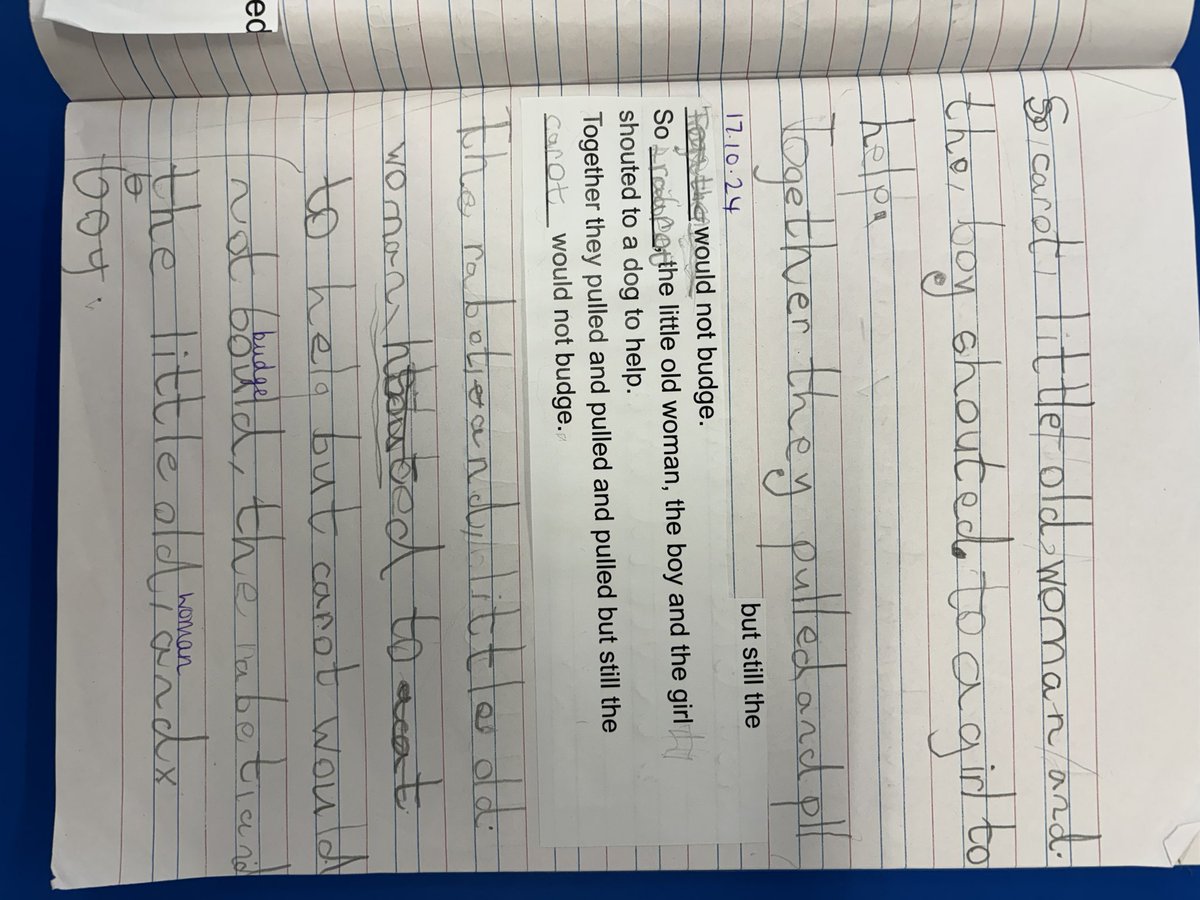 ed
So, carot, little old, woman, and.
the, boy shouted, to a girl to
help.
Together they pulled and pll
but still the
17.10.24
would not budge.
So rabet, the little old woman, the boy and the girl
shouted to a dog to help.
Together they pulled and pulled and pulled but still the
carot would not budge.
The rabet, and, little old.
woman, to
to help but carot would
budge
not bould, the rabet, and
woman
the little old, and x
boy.